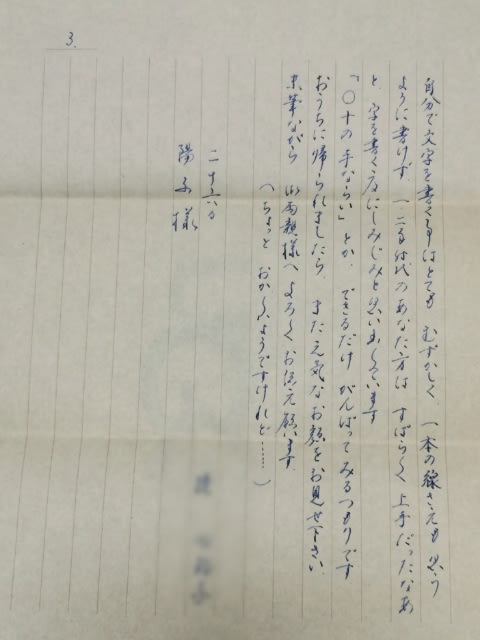 3.
自分で文字を書く事はとても むずかしく、一本の線さえも 思う
ように書けず、一、二年時代のあなた方は すばらしく 上手だったなあ
と、字を書く度にしみじみと思い出しています
「〇十の手ならい」とか、できるだけ がんばってみるつもりです
おうちに帰られましたら、また元気なお顔をお見せ下さい、
末筆ながら 御両親様へ よろしく お伝え願います、
(ちょっと おかしいようですけれど……)
二十六日
陽子様